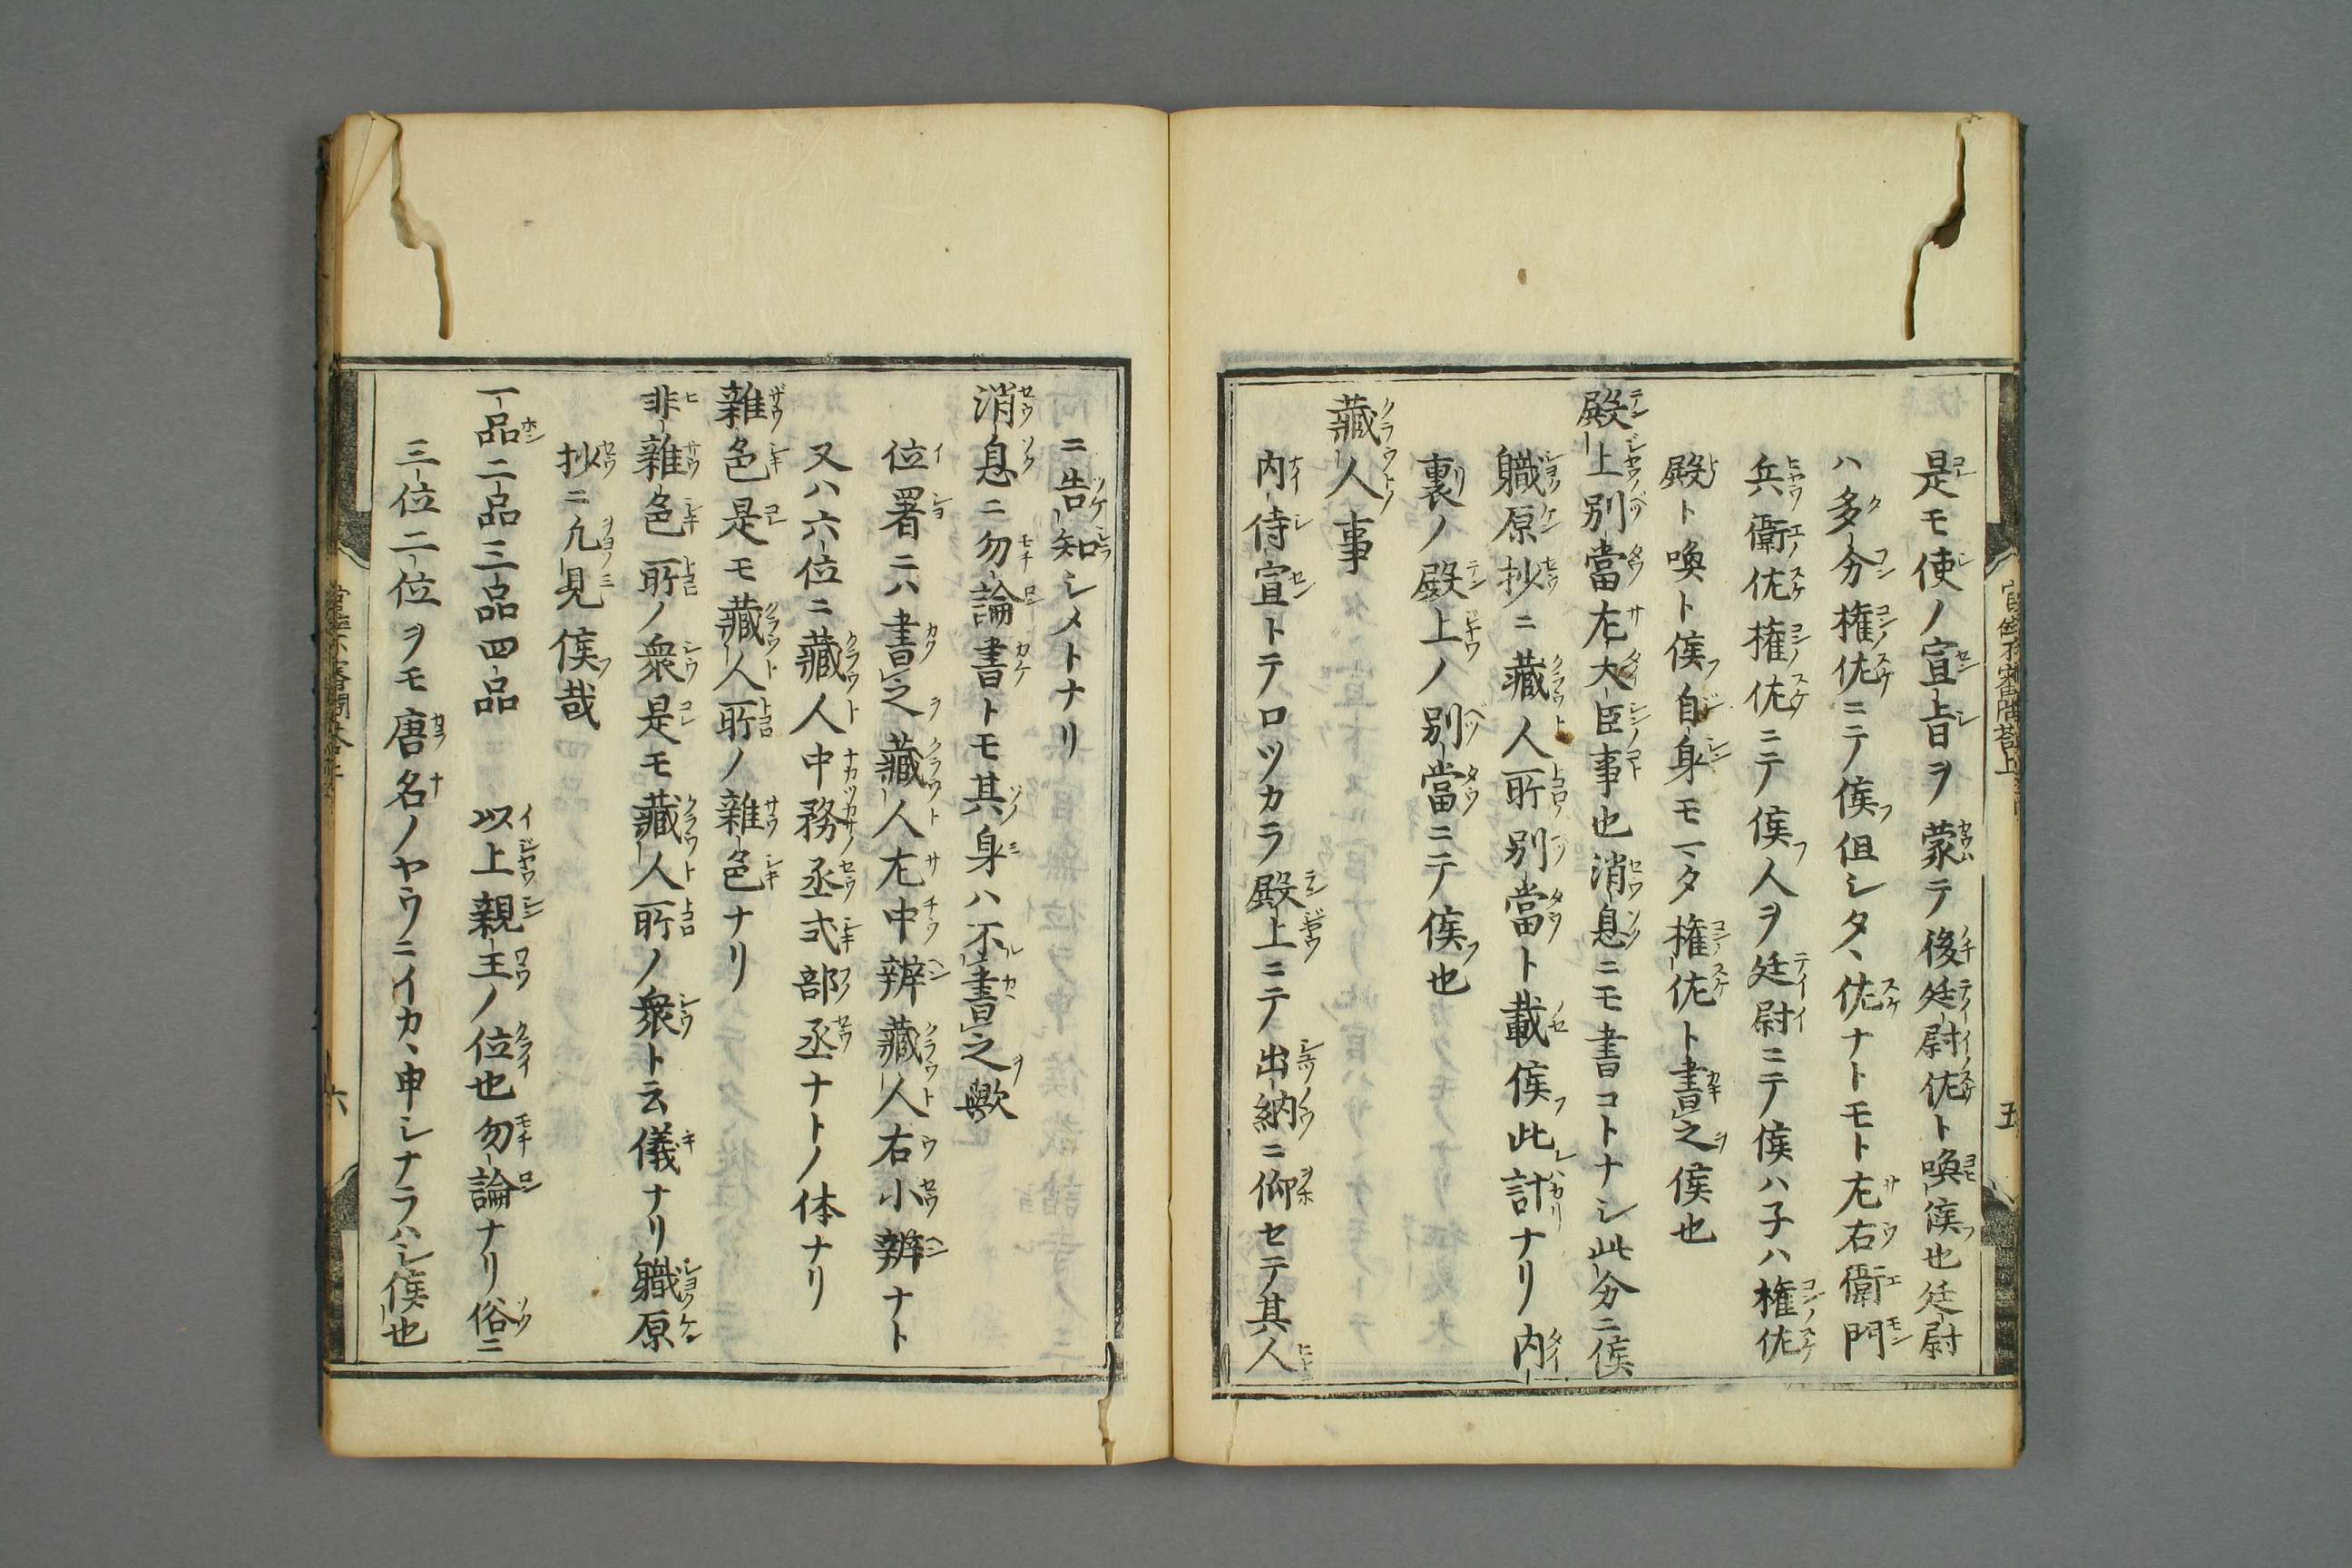 是モ使ノ宣旨ヲ蒙テ後廷尉佐ト喚候也廷尉
ハ多分権佐ニテ候但シタヽ佐ナトモト左右衛門
兵衛佐権佐ニテ候人ヲ廷尉ニテ候ハ子ハ権佐
殿ト喚ト候自身モマタ権佐ト書之候也
殿上別當左大臣事也消息ニモ書コトナシ此分ニ候
職原抄ニ蔵人所別當ト載候此計ナリ内
裏ノ殿上ノ別當ニテ候也
蔵人事
内侍宣トテロツカラ殿上ニテ出納ニ仰セテ其人
ニ告知シメトナリ
消息ニ勿論書トモ其身ハ不書之歟
位署ニハ書之蔵人左中辨蔵人右小辨ナト
又ハ六位ニ蔵人中務丞式部丞ナトノ体ナリ
雜色是モ蔵人所ノ雜色ナリ
非雜色所ノ衆是モ蔵人所ノ衆ト云儀ナリ職原
抄ニ凢見候哉
一品二品三品四品 以上親王ノ位也勿論ナリ俗ニ
三位二位ヲモ唐名ノヤウニイカヽ申シナラハシ候也
五
六